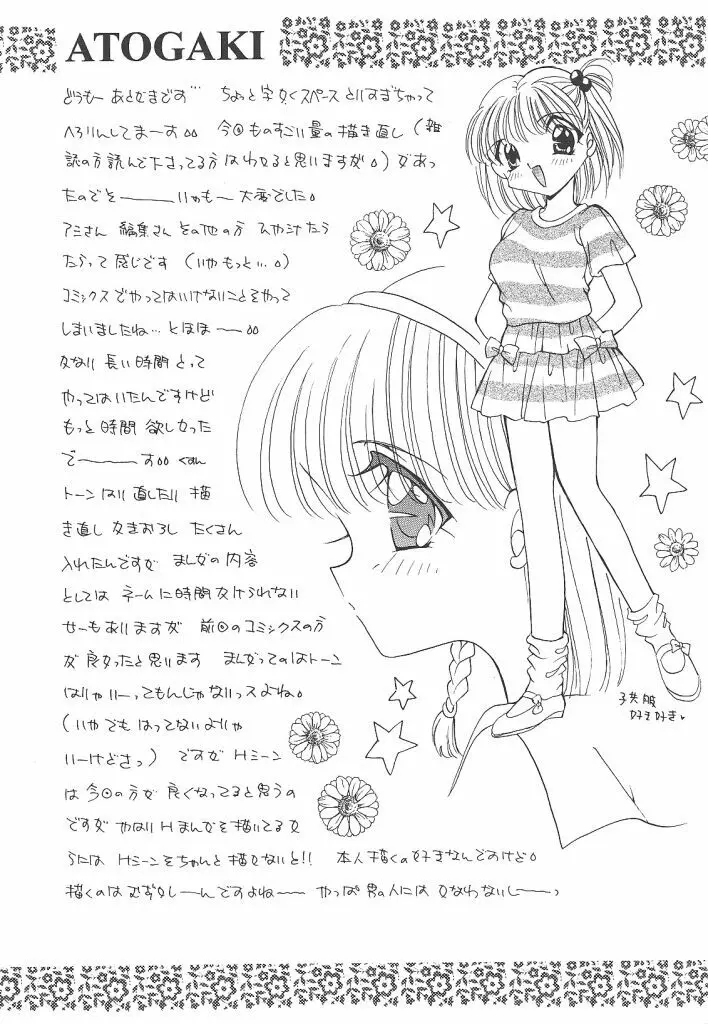 ATOGAKI
どうもー あとがきです… ちょっと字かくスペースとりすぎちゃって
へろりんしてまーす。。 今回ものすごい量の描き直し(雑
誌の方読んで下さってる方はわかると思いますが。)があっ
たのでそ———いやも〜 大変でした。
アミさん 編集さん その他の方 ひやあせたら
たらって感じです (いやもっと…。)
コミックスでやってはいけないことをやって
しまいましたね…とほほ——。。
かなり 長い時間とって
やってはいたんですけど
もっと時間 欲しかった
で————す。。くすん
トーンはり直したり 描
き直し かきおろし たくさん
入れたんですが まんがの内容
としては ネームに時間かけられない
せーもありますが 前回のコミックスの方
が良かったと思います まんがってのはトーン
はりゃいーってもんじゃないっスよね。
(いやでも はってないよりゃ
いーけどさっ) ですが Hシーン
は今回の方が 良くなってると思うの
ですが やはりHまんがを描いてるか
らには Hシーンをちゃんと描かないと!! 本人描くの好きなんですけど。
描くのはむずかしーんですよね〜〜 やっぱ男の人には かなわないし——っ
子供服
好き好き♥